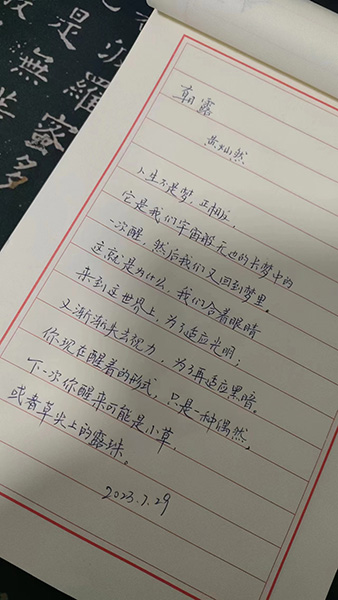 是
無
羅蜜多
朝露
黄灿然
人生不是梦，正相反，
它是我们宇宙般无边的长梦中的
一次醒，然后我们又回到梦里。
这就是为什么，我们合着眼睛
来到这世界上，为了适应光明；
又渐渐失去视力，为了再适应黑暗。
你现在醒着的形式，只是一种偶然，
下一次你醒来可能是小草，
或者草尖上的露珠。
2023.7.29